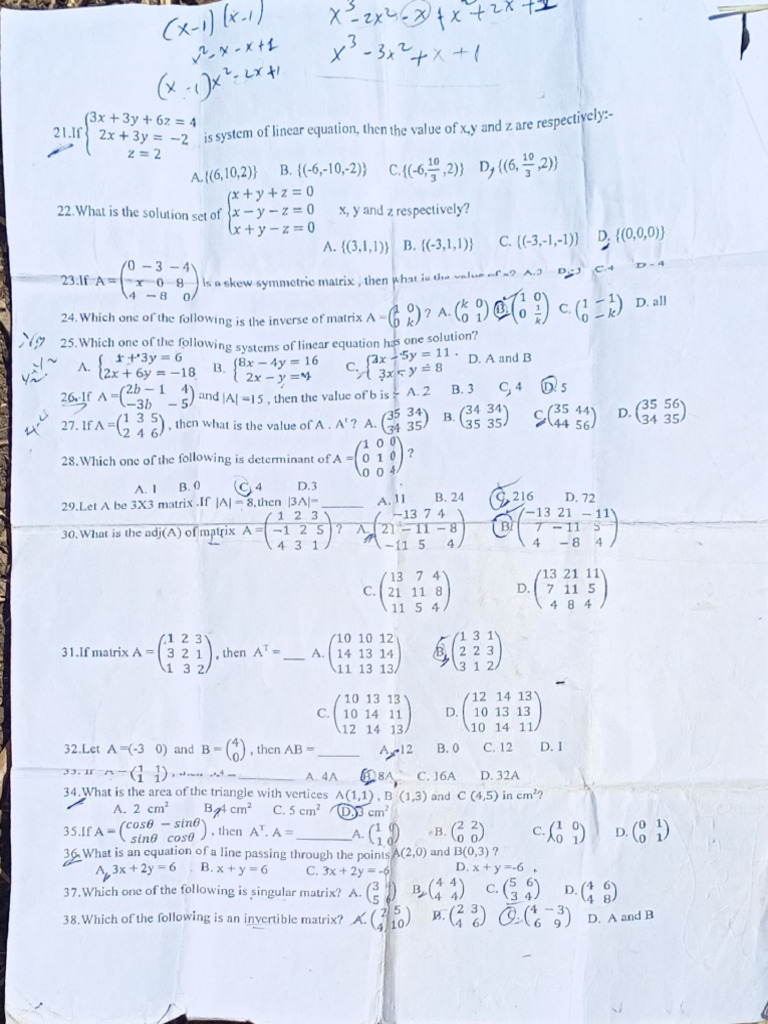 (x-1)(x-1) x³-2x²-x+x²+2x+1
x²-x-x+1 x³-3x²+x+1
(x-1)x²-2x+1
21.If {3x + 3y + 6z = 4
2x + 3y = −2 is system of linear equation, then the value of x,y and z are respectively:-
z = 2
A.{(6,10,2)} B. {(-6,-10,-2)} C.{(-6,10/3,2)} D, {(6, 10/3,2)}
{x + y + z = 0
22.What is the solution set of {x − y − z = 0 x, y and z respectively?
{x + y − z = 0
A. {(3,1,1)} B. {(-3,1,1)} C. {(-3,-1,-1)} D. {(0,0,0)}
(0 − 3 − 4)
23.If A = (x 0 8) is a skew symmetric matrix , then what is the value of x? A.3 D.-3 C.4 D - 4
(4 − 8 0)
24. Which one of the following is the inverse of matrix A = (1 0
0 k)? A. (k 0
0 1) B. (1 0
0 1/k) C. (1 − 1
0 − k) D. all
25.Which one of the following systems of linear equation has one solution?
A. {x + 3y = 6
2x + 6y = −18 B. {8x − 4y = 16
2x − y = 4 C. {2x − 5y = 11
3x − y = 8 D. A and B
26. If A = (2b − 1 4
−3b − 5) and |A| =15 , then the value of b is A. 2 B. 3 C, 4 D. 5
27. If A = (1 3 5
2 4 6), then what is the value of A . A' ? A. (35 34
34 35) B. (34 34
35 35) C. (35 44
44 56) D. (35 56
34 35)
28.Which one of the following is determinant of A = (1 0 0
0 1 0
0 0 4)?
A. 1 B. 0 C, 4 D.3
29.Let A be 3X3 matrix .If |A| = 8,then |3A|= ______ A. 11 B. 24 C. 216 D. 72
30.What is the adj(A) of matrix A = (1 2 3
−1 2 5
4 3 1)? A. (−13 7 4
21 − 11 − 8
−11 5 4) B. (−13 21 − 11
7 − 11 5
4 − 8 4)
C. (13 7 4
21 11 8
11 5 4) D. (13 21 11
7 11 5
4 8 4)
31.If matrix A = (1 2 3
3 2 1
1 3 2), then Aᵀ = ___ A. (10 10 12
14 13 14
11 13 13) B. (1 3 1
2 2 3
3 1 2)
C. (10 13 13
10 14 11
12 14 13) D. (12 14 13
10 13 13
10 14 11)
32.Let A =(-3 0) and B = (4
0), then AB = ______ A. -12 B. 0 C. 12 D. 1
33. If A = (1 1
1 1), ______ A. 4A B. 8A C. 16A D. 32A
34.What is the area of the triangle with vertices A(1,1) , B (1,3) and C (4,5) in cm²?
A. 2 cm² B. 4 cm² C. 5 cm² D. 3 cm²
35.If A = (cosθ − sinθ
sinθ cosθ), then Aᵀ. A = ______ A. (1 0
1 0) B. (2 2
0 0) C. (1 0
0 1) D. (0 1
0 1)
36. What is an equation of a line passing through the points A(2,0) and B(0,3) ?
A, 3x + 2y = 6 B. x + y = 6 C. 3x + 2y = -6 D. x + y =-6 .
37.Which one of the following is singular matrix? A. (3
5 6) B. (4 4
4 4) C. (5 6
3 4) D. (4 6
4 8)
38.Which of the following is an invertible matrix? A. (2 5
4 10) B. (2 3
4 6) C. (4 − 3
6 9) D. A and B